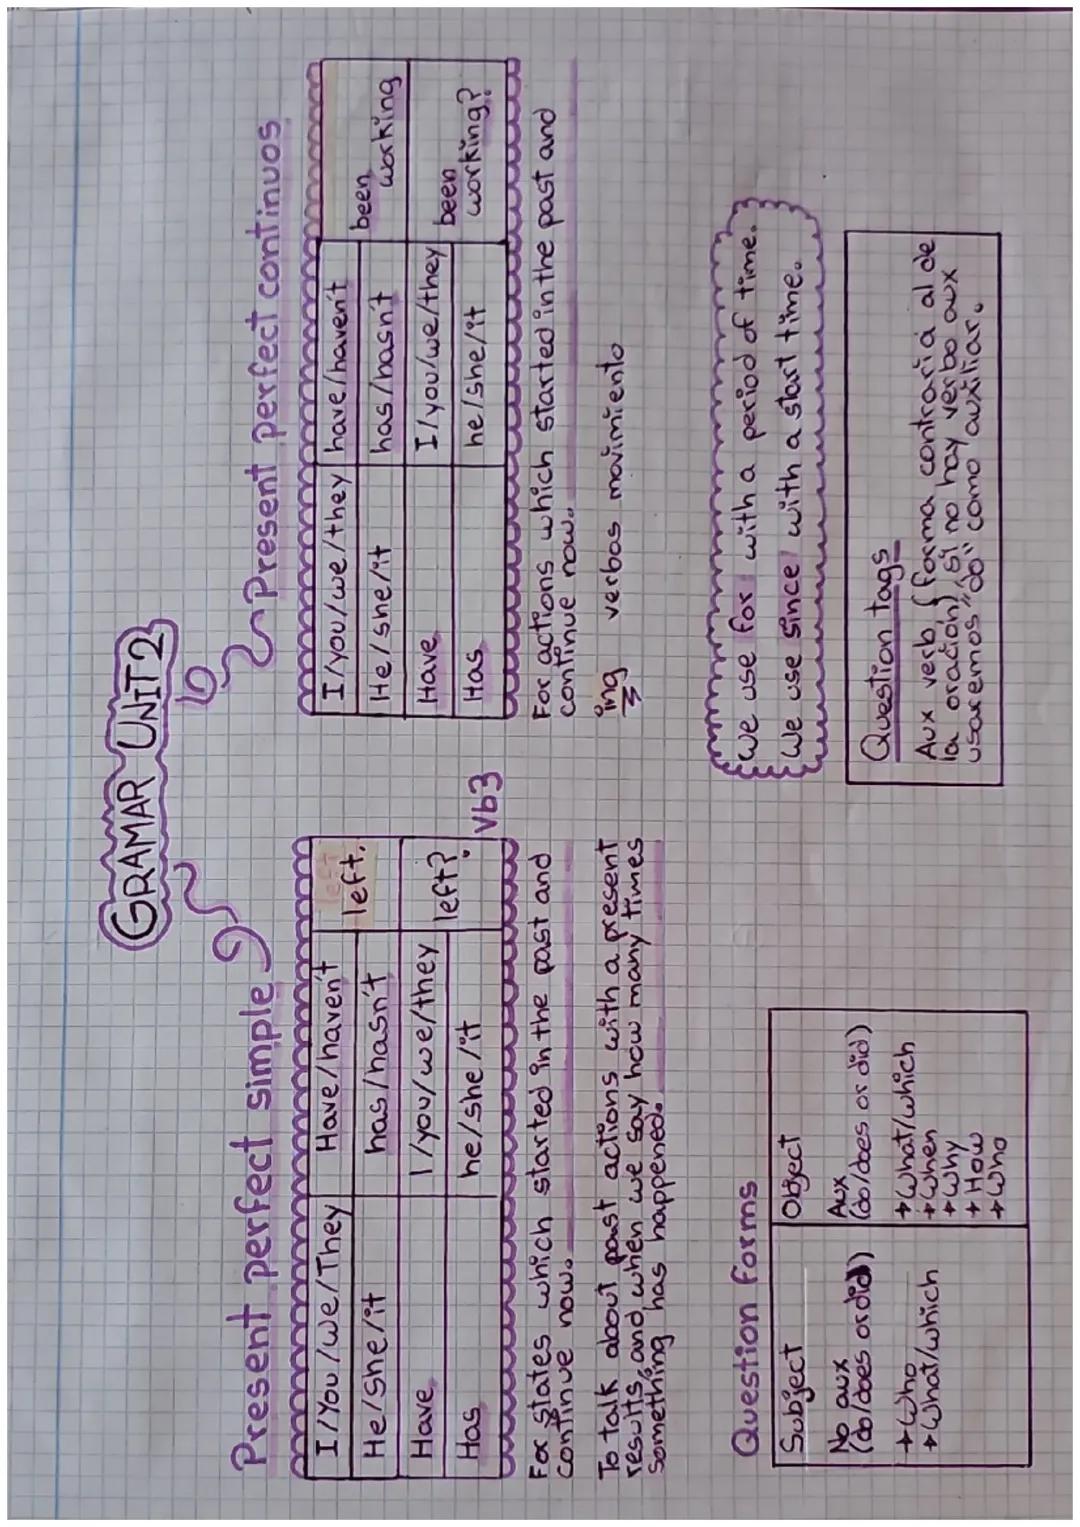 GRAMAR UNIT 2
Present perfect simple
I/You/we/They Have/haven't left left.
He/she/it has/hasn't
Have I/you/we/they left?
Has he/she/it
Vb3
For states which started in the past and
continue now.
To talk about past actions with a present
results, and when we say how many times
something has happened.
Present perfect continuos
I/you/we/they have/haven't been working
He/she/it has/hasn't
Have I/you/we/they been working?
Has he/she/it
For actions which started in the past and
continue now.
ing verbos movimiento
Question forms
Subject
No aux
(do/does or did)
→Who
→What/which
Object
Aux
(do/does or did)
→What/which
→When
→Why
→How
→Who
We use for with a period of time.
We use since with a start time.
Question tags
Aux verb, (forma contraria al de
la oración) si no hay verbo aux
usaremos "do" como auxiliar.